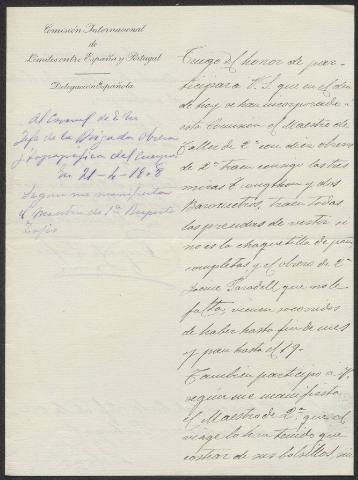 Comisión Internacional
de
Límites entre España y Portugal
Delegación Española
Al Coronel de E. M.
Jefe de la Brigada Obrera
y topográfica del Cuerpo
en 21-4-1908
Segun me manifiesta
el Maestro de 1ª
Tengo el honor de par-
ticipar a V. S. que en el dia
de hoy se han incorporado a
esta Comisión el Maestro de
Taller de 2ª con diez obreros
de 2ª traen consigo las tres
miras y dos
Barometros, traen todas
las prendas de vestir si
no es la chaquetilla de paño
completas y el obrero de 2ª
Jaime Paradell que no le
falta, vienen socorridos
de haber hasta fin de mes
y pan hasta el 19.
Tambien participo a V.
segun me manifiesta
el Maestro de 2ª que el
viage lo han tenido que
costear de sus bolsillos, su